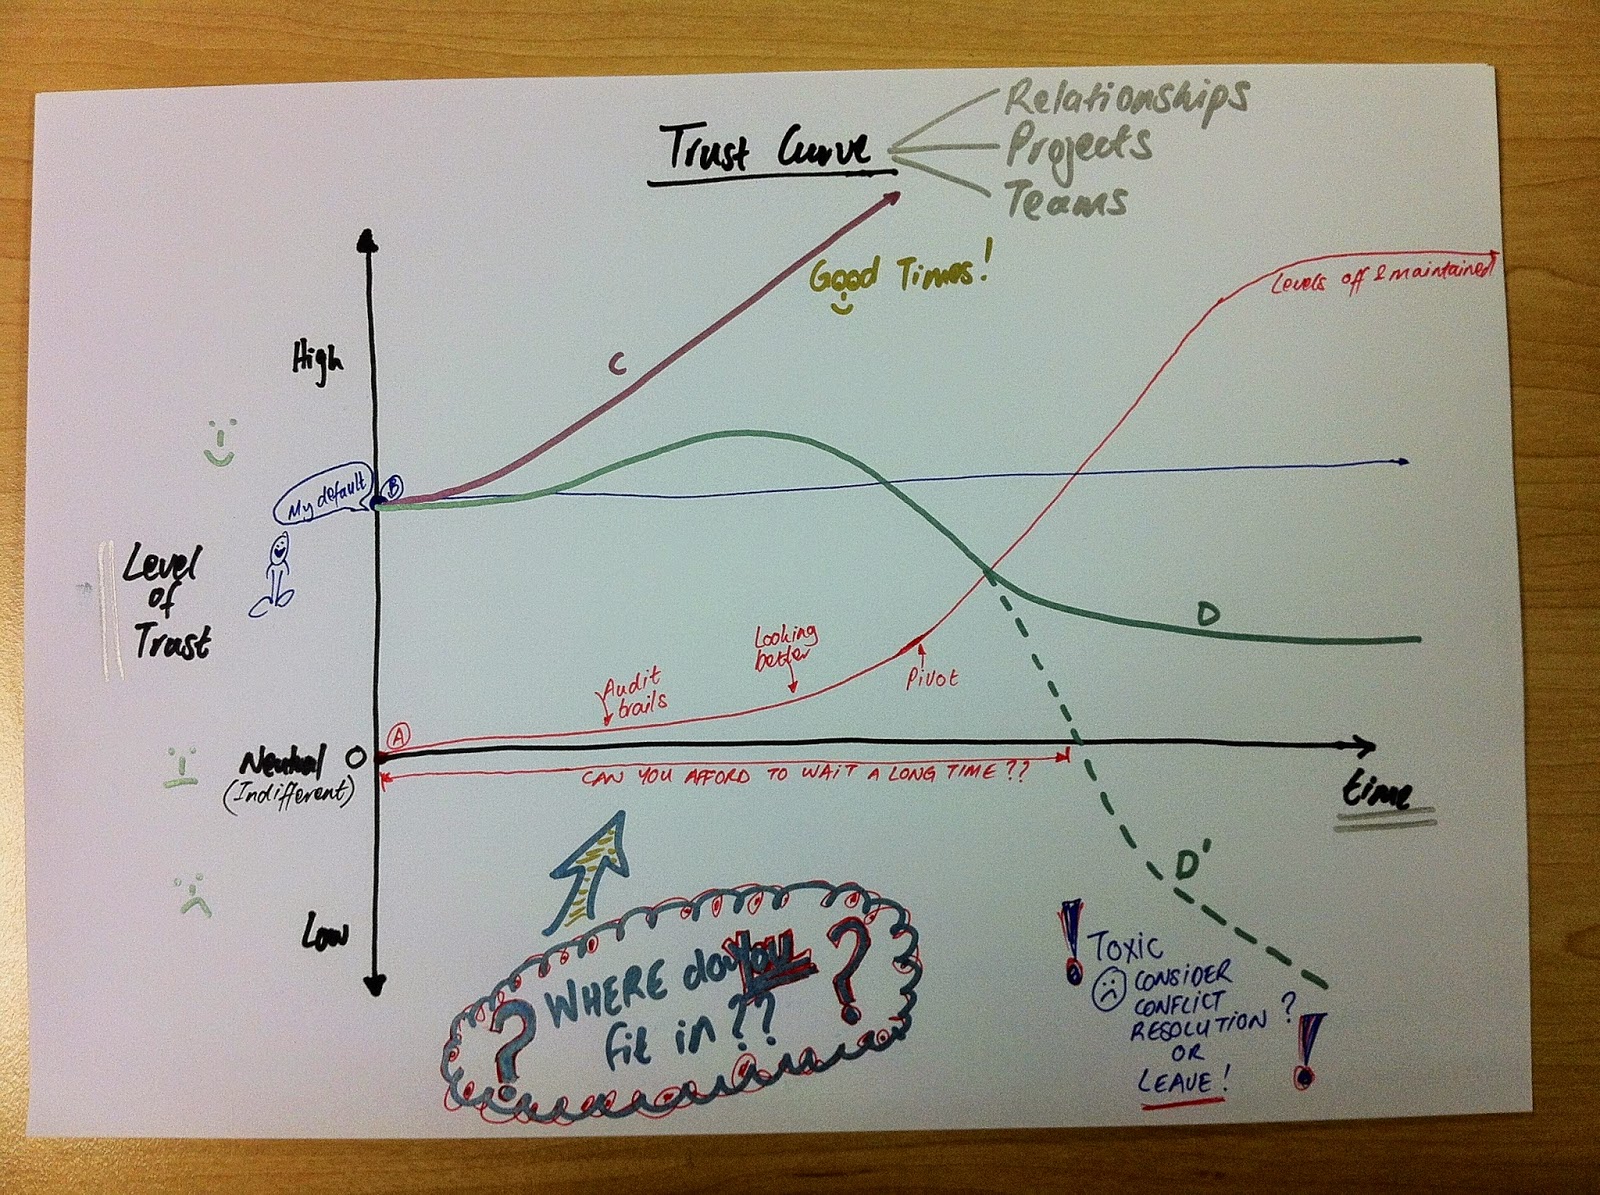 Trust Curve
Relationships
Projects
Teams
Good Times!
Levels off & maintained
High
C
My default
B
Level
of
Trust
D
Looking
better
Audit
trails
Pivot
A
Neutral O
(Indifferent)
CAN YOU AFFORD TO WAIT A LONG TIME??
time
D'
Low
? WHERE do YOU ?
fit in??
! TOXIC
CONSIDER
CONFLICT
RESOLUTION ?
OR
LEAVE! !